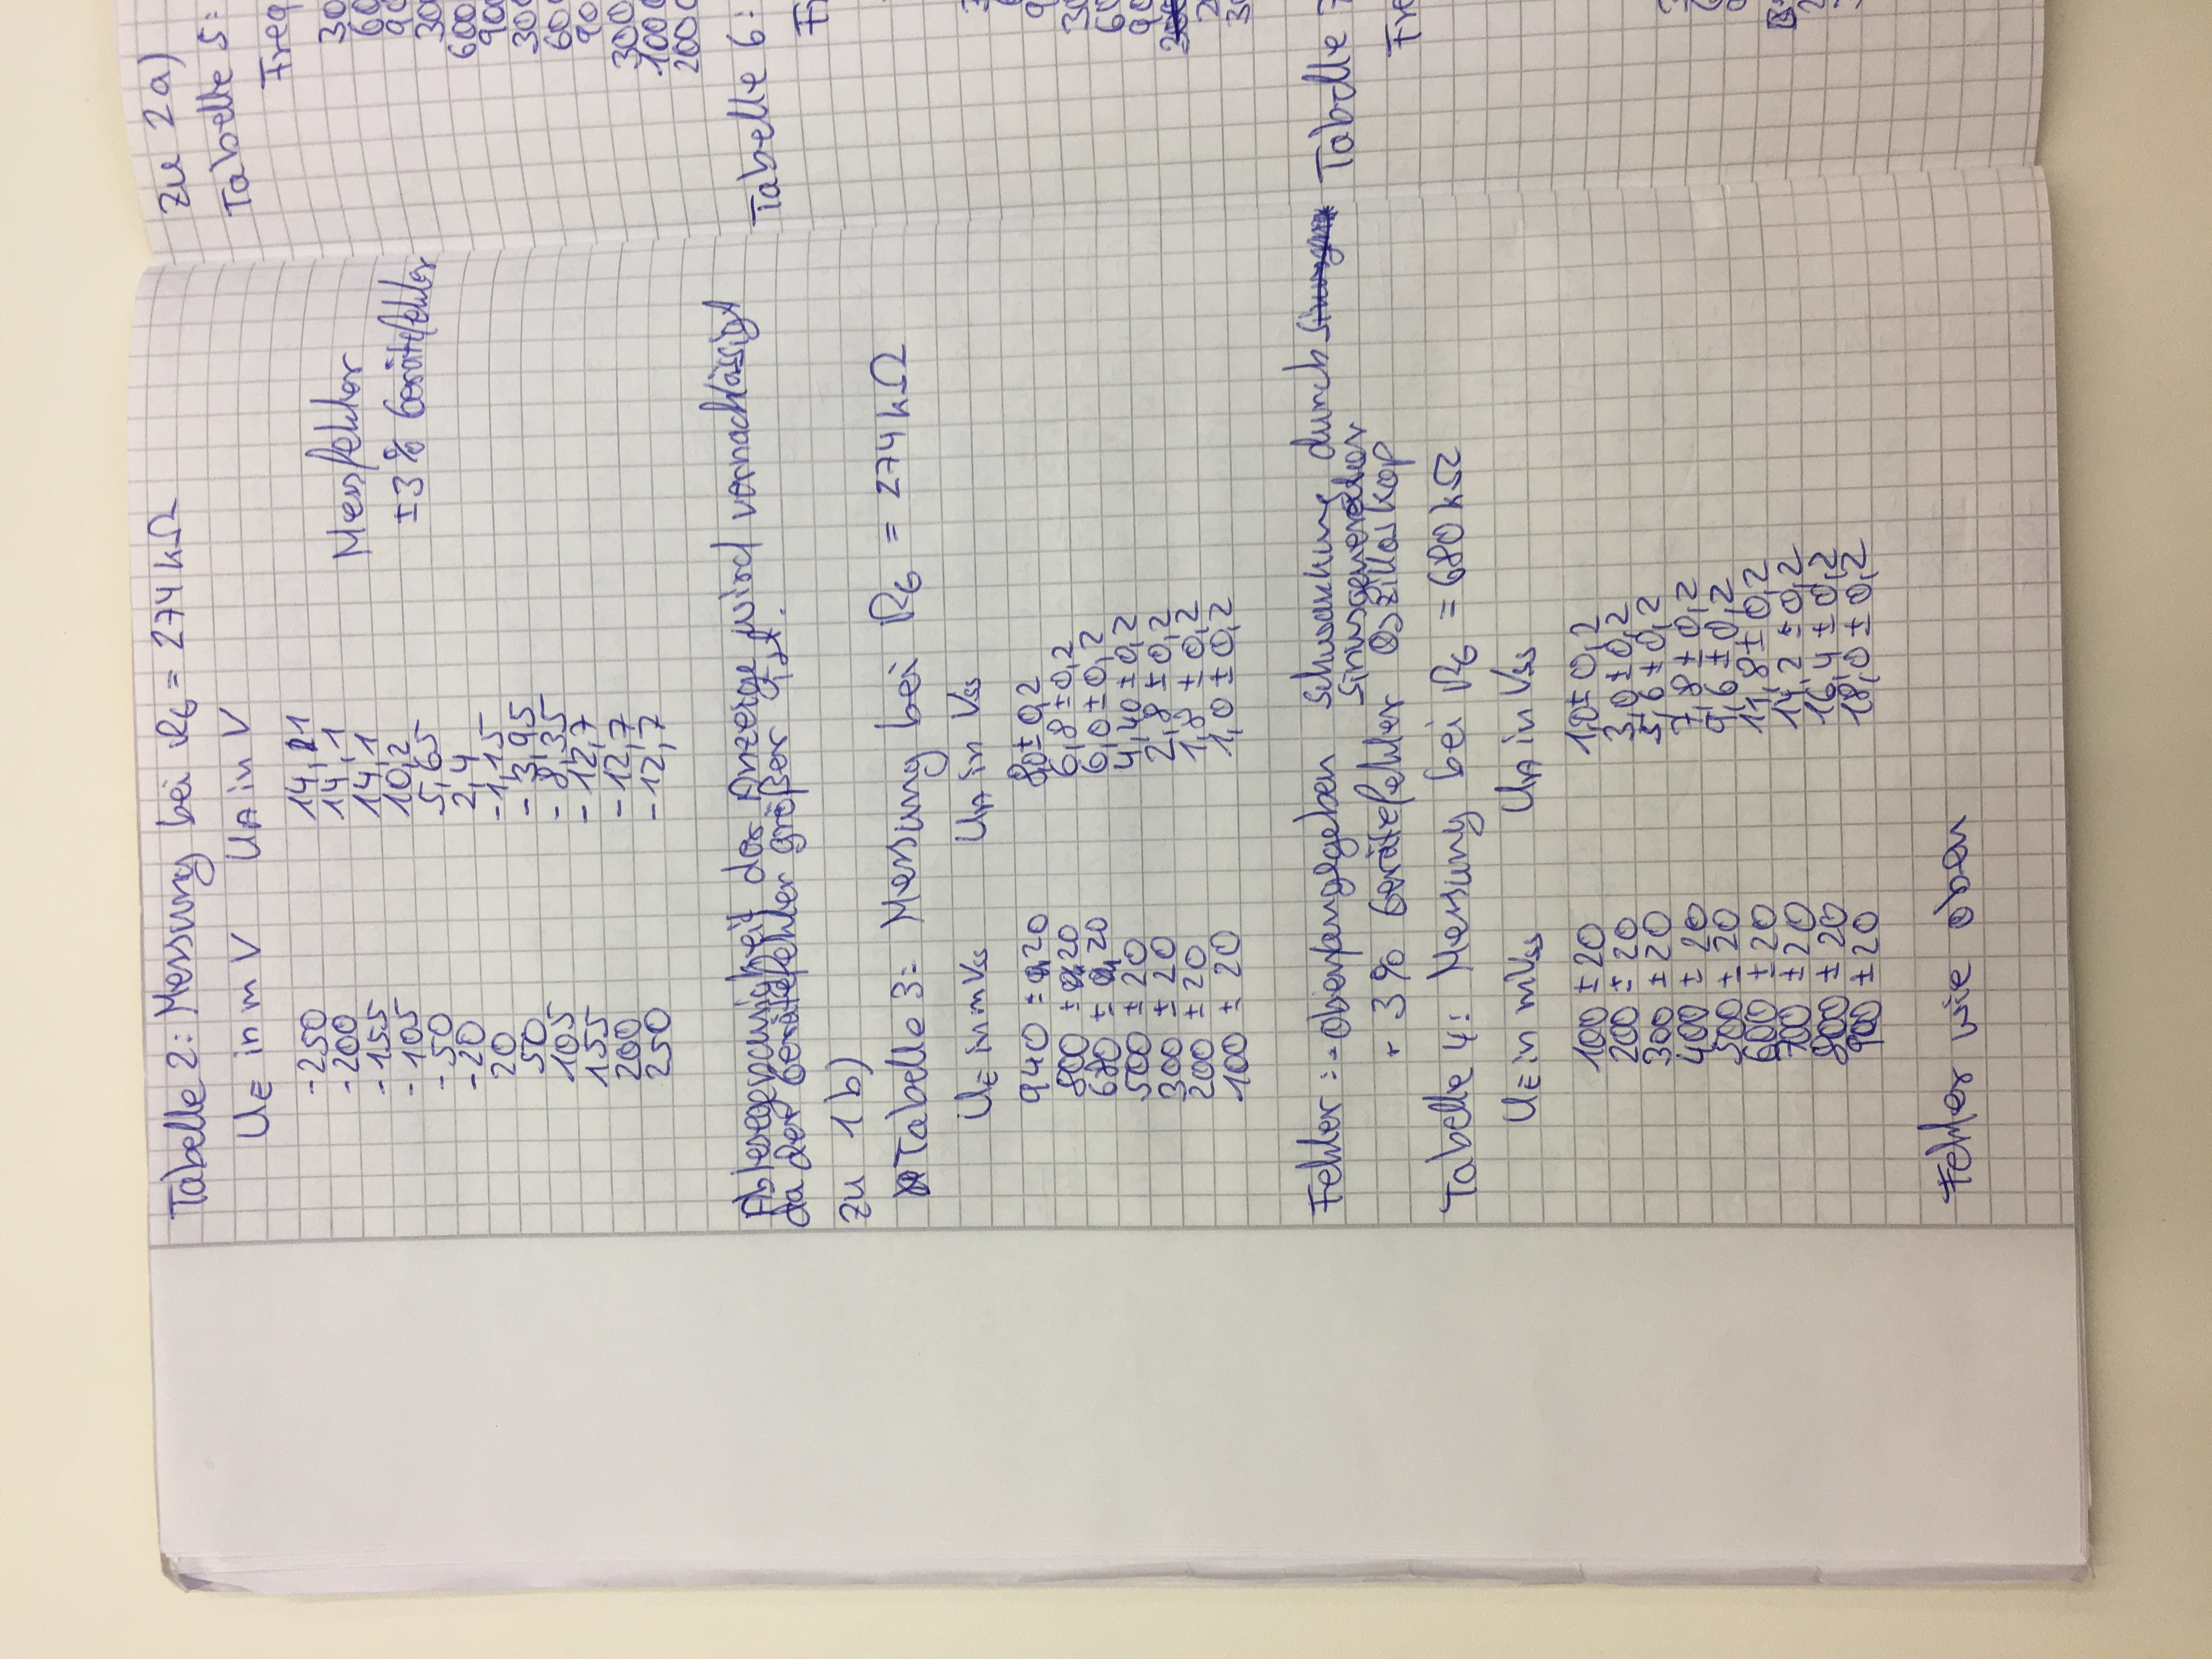 Tabelle 2: Messung bei RG = 274 kΩ
UE in mV UA in V
-250 14,1
-200 14,1
-155 14,1
-105 10,2
-50 5,65
-20 2,4
20 -1,15
50 -3,95
105 -8,35
155 -12,7
200 -12,7
250 -12,7
Messfehler
±3% Gerätefehler
Ablesegenauigkeit der Anzeige wird vernachlässigt
da der Gerätefehler größer ist.
zu 1b)
Tabelle 3: Messung bei RG = 274 kΩ
UE in mVss UA in Vss
940 ± 20 8,0 ± 0,2
800 ± 20 6,8 ± 0,2
680 ± 20 6,0 ± 0,2
500 ± 20 4,40 ± 0,2
300 ± 20 2,8 ± 0,2
200 ± 20 1,8 ± 0,2
100 ± 20 1,0 ± 0,2
Fehler: - oben angegeben Schwankung durch
Sinusgenerator
- 3% Gerätefehler Oszilloskop
Tabelle 4: Messung bei RG = 680 kΩ
UE in mVss UA in Vss
100 ± 20 1,0 ± 0,2
200 ± 20 3,0 ± 0,2
300 ± 20 5,6 ± 0,2
400 ± 20 7,8 ± 0,2
500 ± 20 9,6 ± 0,2
600 ± 20 11,8 ± 0,2
700 ± 20 14,2 ± 0,2
800 ± 20 16,4 ± 0,2
900 ± 20 18,0 ± 0,2
Fehler wie oben
zu 2a)
Tabelle 5:
Tabelle 6:
Tabelle